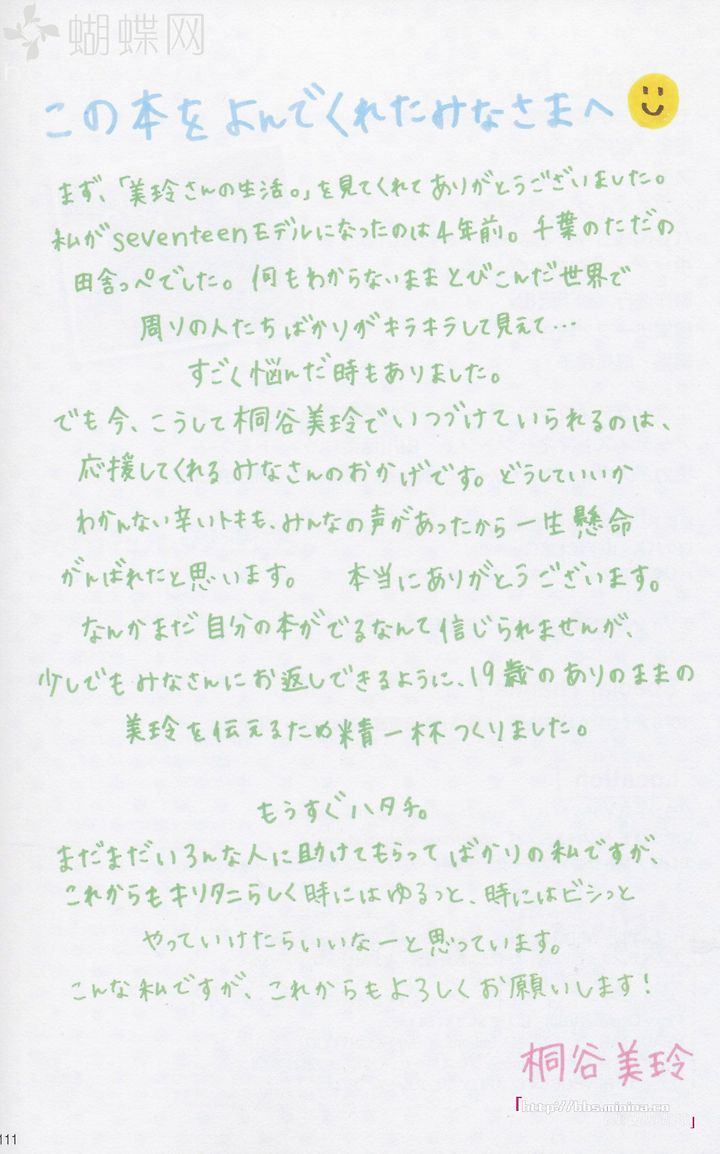 蝴蝶网
この本をよんでくれたみなさまへ
まず、「美玲さんの生活。」を見てくれてありがとうございました。
私がseventeenモデルになったのは4年前。千葉のただの
田舎っぺでした。何もわからないままとびこんだ世界で
周りの人たちばかりがキラキラして見えて…
すごく悩んだ時もありました。
でも今、こうして桐谷美玲でいつづけていられるのは、
応援してくれるみなさんのおかげです。どうしていいか
わかんない辛いトキも、みんなの声があったから一生懸命
がんばれたと思います。 本当にありがとうございます。
なんかまだ自分の本がでるなんて信じられませんが、
少しでもみなさんにお返しできるように、19歳のありのままの
美玲を伝えるため精一杯つくりました。
もうすぐハタチ。
まだまだいろんな人に助けてもらってばかりの私ですが、
これからもキリタニらしく時にはゆるっと、時にはビシっと
やっていけたらいいなーと思っています。
こんな私ですが、これからもよろしくお願いします!
桐谷美玲
「http://bbs.minina.cn
」
111